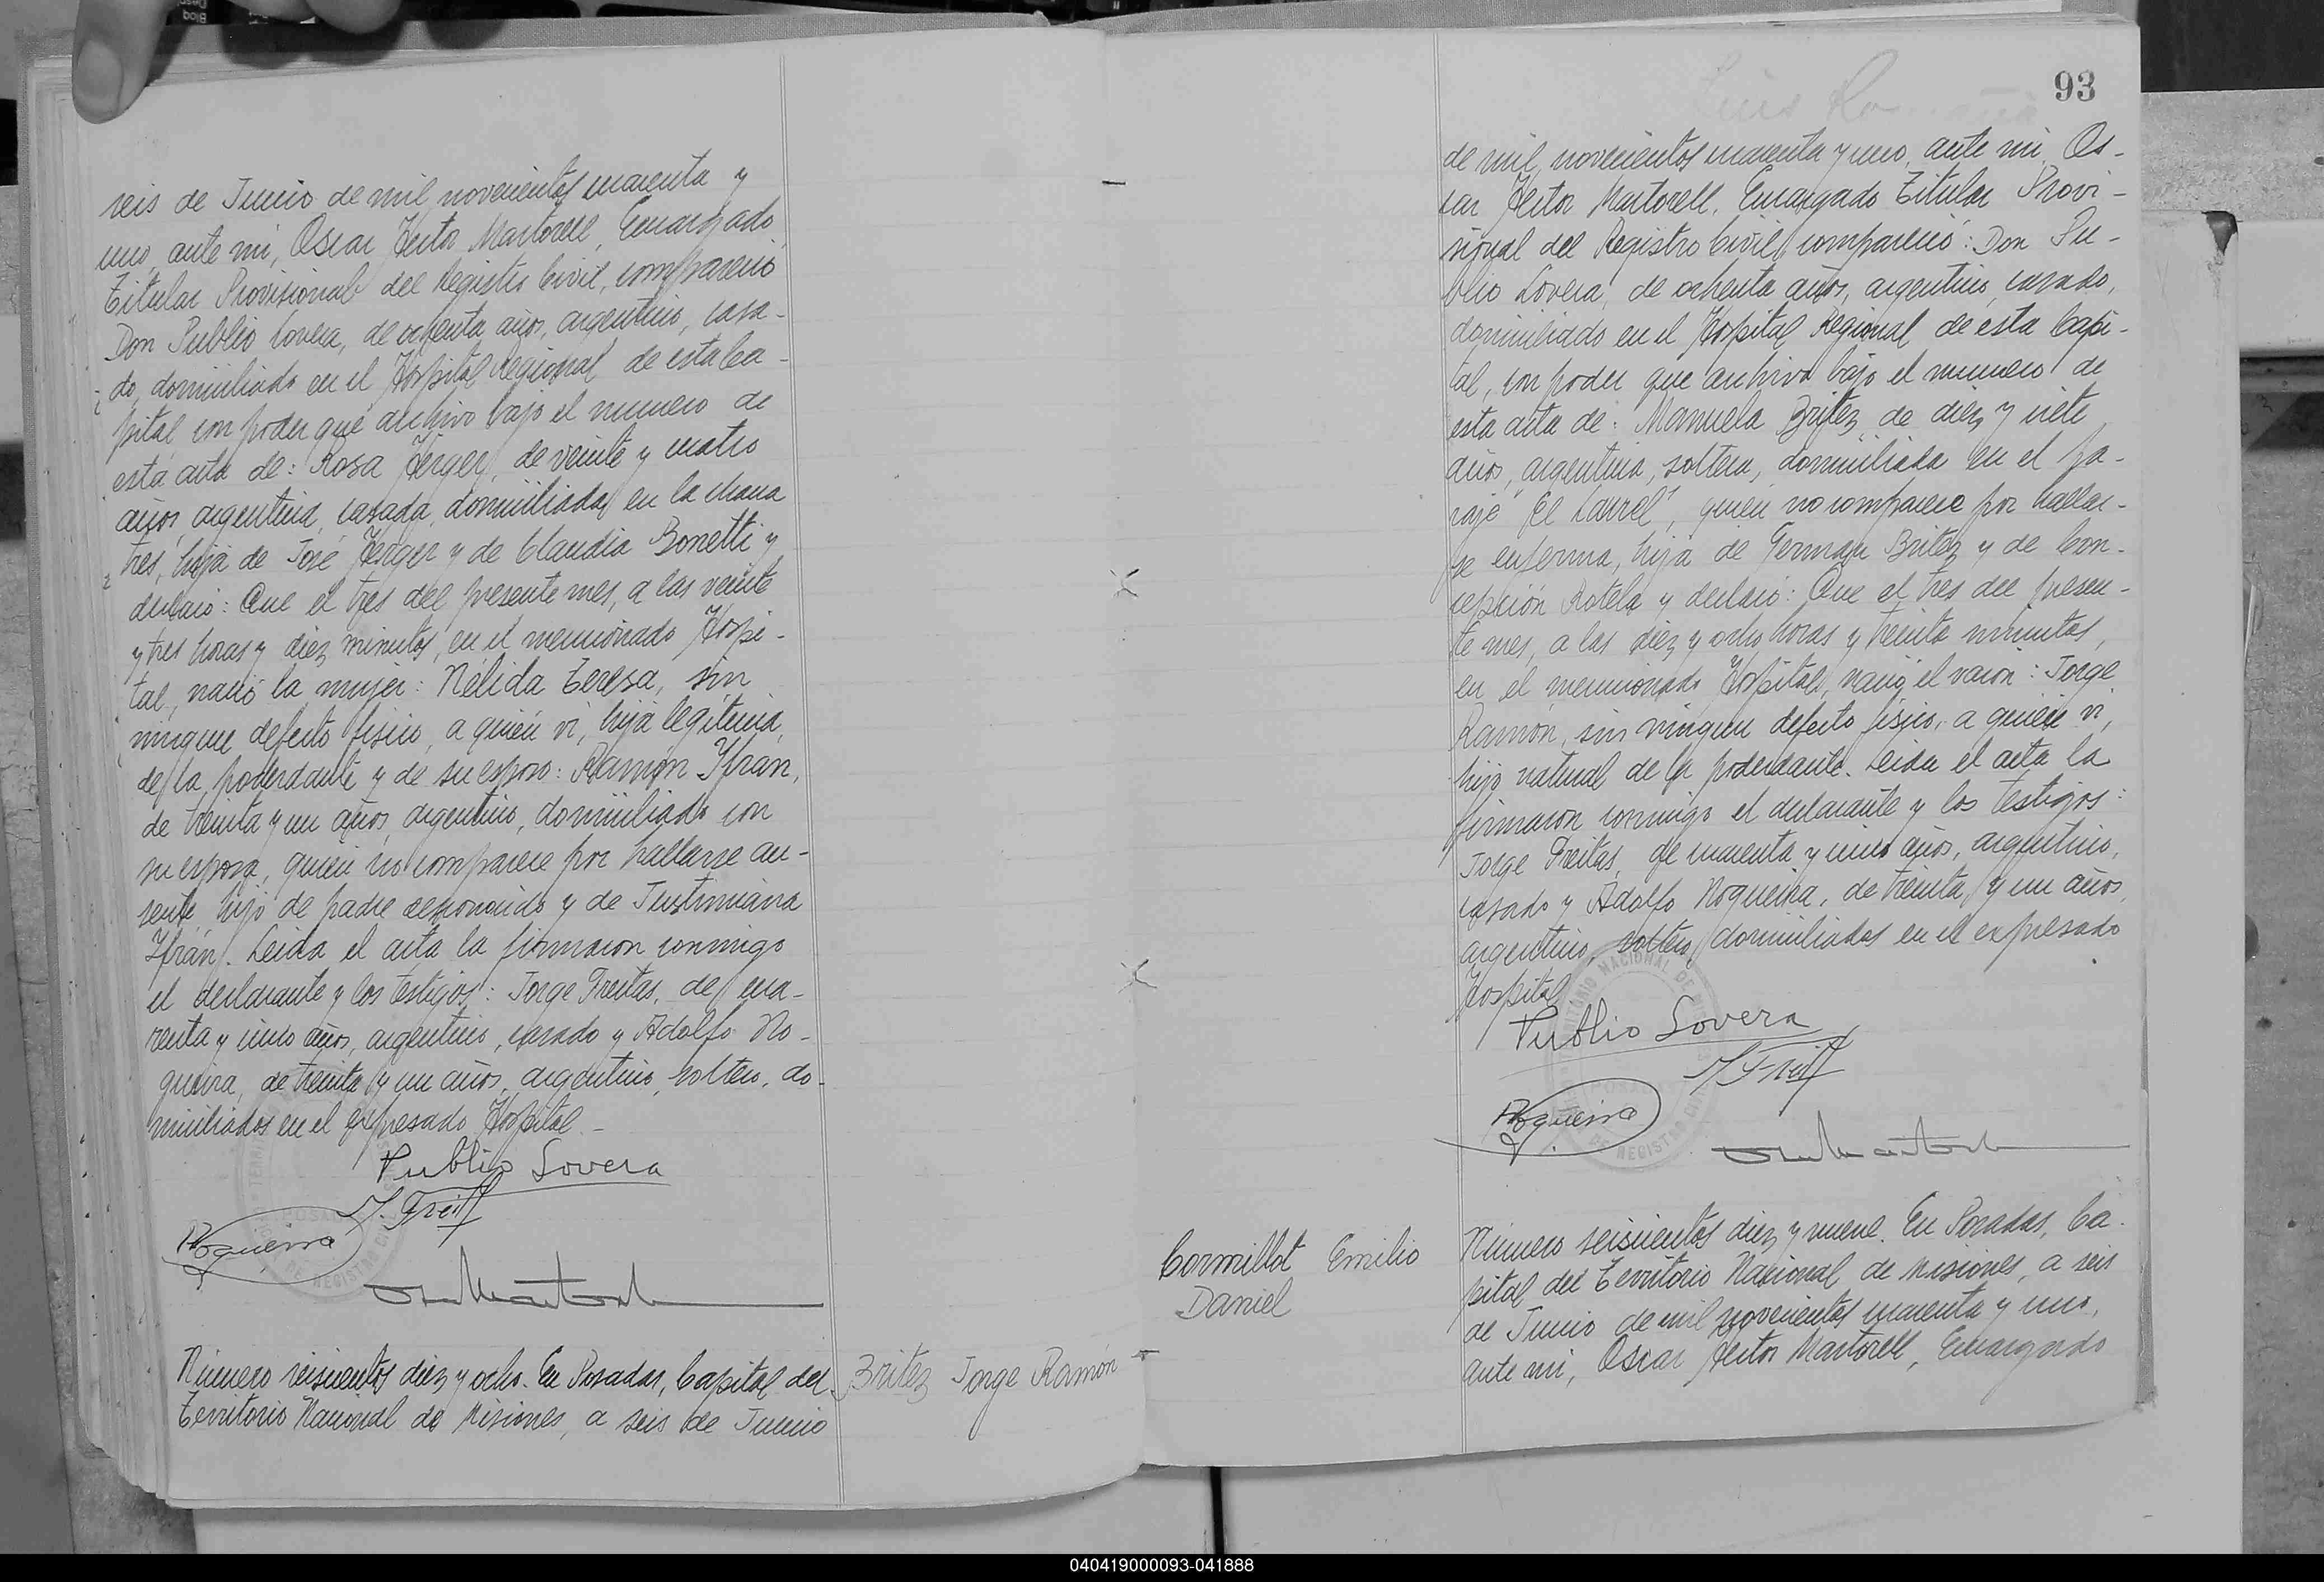 seis de Junio de mil novecientos cuarenta y
uno, ante mi, Oscar Héctor Martorell, Encargado
Titular Provisional del Registro Civil, compareció
Don Publio Lovera, de ochenta años, argentino, casa-
do, domiciliado en el Hospital Regional de esta Ca-
pital con poder que archivo bajo el numero de
esta acta de: Rosa Herger, de veinte y cuatro
años, argentina, casada, domiciliada en la chacra
tres, hija de José Herger y de Claudia Bonetti y
declaró: Que el tres del presente mes, a las veinte
y tres horas y diez minutos, en el mencionado Hospi-
tal, nació la mujer: Nélida Teresa, sin
ningun defecto fisico, a quién vi, hija legitima,
de la poderdante y de su esposo: Ramón Yfrán,
de treinta y un años, argentino, domiciliado con
su esposa, quién no comparece por hallarse au-
sente, hijo de padre desconocido y de Justiniana
Yfrán. Leida el acta la firmaron conmigo
el declarante y los testigos: Jorge Freitas, de cua-
renta y cinco años, argentino, casado y Adolfo No-
gueira, de treinta y un años, argentino, soltero, do-
miciliados en el expresado Hospital.-
Publio Lovera
J. Freit
Nogueira
Numero seiscientos diez y ocho. En Posadas, Capital del
Territorio Nacional de Misiones, a seis de Junio
Britez Jorge Ramón
93
de mil novecientos cuarenta y uno, ante mi, Os-
car Héctor Martorell, Encargado Titular Provi-
sional del Registro Civil, compareció: Don Pu-
blio Lovera, de ochenta años, argentino, casado,
domiciliado en el Hospital Regional de esta Capi-
al, con poder que archivo bajo el numero de
esta acta de: Manuela Britez, de diez y siete
años, argentina, soltera, domiciliada en el pa-
raje "El Laurel", quién no comparece por hallar-
se enferma, hija de German Britez y de Con-
cepción Rotela y declaró: Que el tres del presen-
te mes, a las diez y ocho horas y treinta minutos,
en el mencionado Hospital, nació el varon: Jorge
Ramón, sin ningun defecto fisico, a quién vi,
hijo natural de la poderdante. Leida el acta la
firmaron conmigo el declarante y los testigos:
Jorge Freitas, de cuarenta y cinco años, argentino,
casado y Adolfo Nogueira, de treinta y un años,
argentino, soltero, domiciliados en el expresado
Hospital
Publio Lovera
J Freit
Nogueira
Cormillot Emilio
Daniel
Número seiscientos diez y nueve. En Posadas, Ca-
pital del Territorio Nacional de Misiones, a seis
de Junio de mil novecientos cuarenta y uno,
ante mi, Oscar Héctor Martorell, Encargado
040419000093-041888